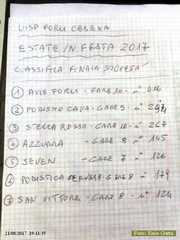 UISP FORLI CESENA
ESTATE IN FESTA 2017
CLASSIFICA FINALE SOCIETA'
1 AVIS FORLI - GARE 10 - n°
2 PODISTICA CAVA - GARE 9 - n°
3 STELLA ROSSA - GARE 10 - n°
4 AZZURRA - GARE 8 n° 145
5 SEVEN - GARE 7 n° 126
6 PODISTICA GARE 8 n° 179
7 SAN VITTORE - GARE 8 n° 124
21/08/2017 19:11:35
Foto: